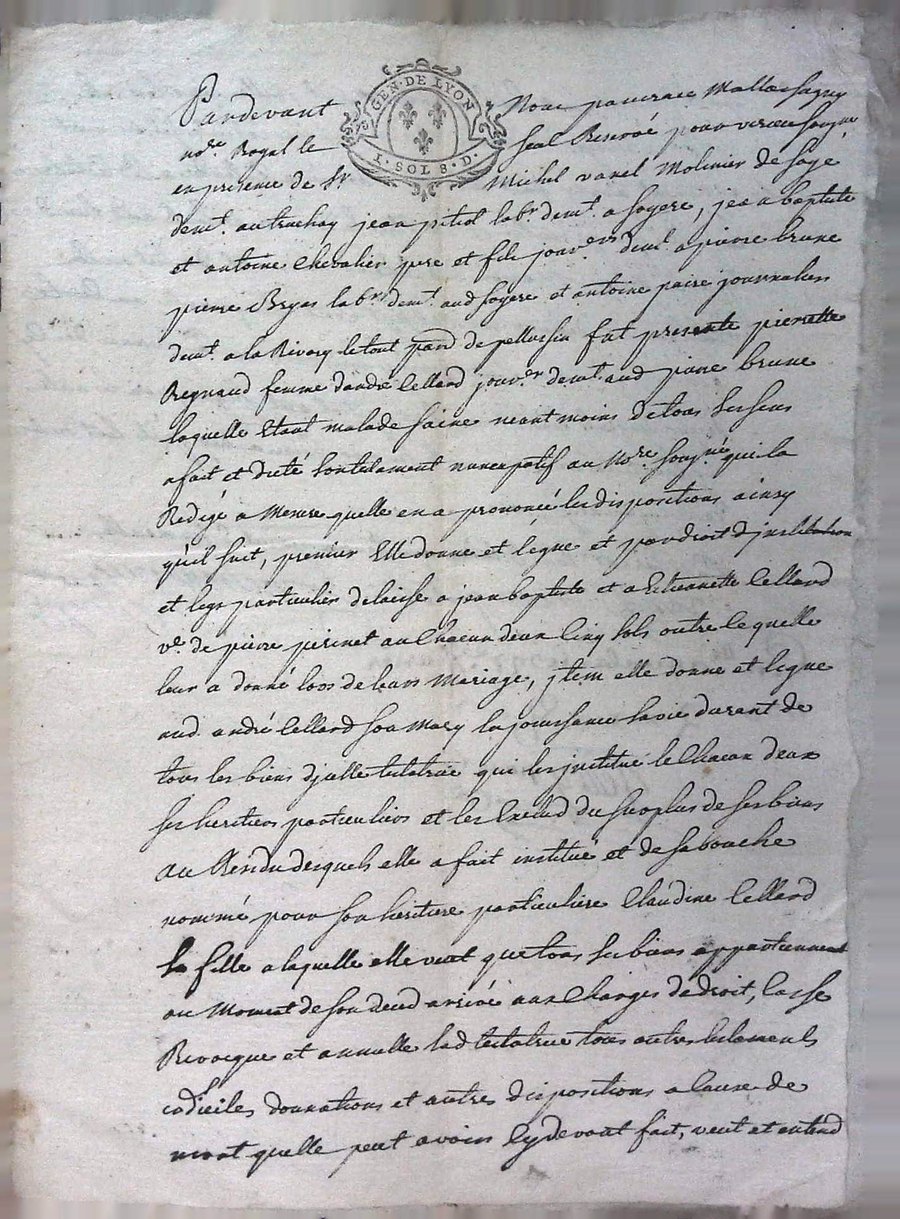 GEN. DE LYON
1. SOL 8. D.
Pardevant Nous
no.re Royal le Seal Renové pour soug.né
en presence de Sr Michel vanel Molinier de
dem.t jean pitiot lab.r dem.t a soyere, jean baptiste
et antoine Chevalier pere et fils jour.ers dem.t a pierre brune
pierre lab.r dem.t aud soyere et antoine paire journalier
dem.t a la Rivory le tout par.d de pellussin fut presente pierrette
Regnaud femme dandré Cellard jour.er dem.t aud pierre brune
laquelle Etant malade saine neantmoins de tous ses sens
a fait et dicté son testament nuncupatif au No.re soug.né qui la
Redigé a Mesure quelle en a prononcé les dispositions ainsy
qu'il suit, premier Elle donne et legue et par droit d'institution
et legs particulier delaisse a jean baptiste et a Cellard
v.e de pierre perinet au Chacun deux Cinq sols outre ce quelle
leur a donné lors de leurs Mariage, jtem elle donne et legue
aud. andré Cellard son Mary la jouissance sa vie durant de
tous les biens djcelle testatrice qui les jnstitue le Chacun deux
ses heritiers particuliers et les Exclud du surplus de ses biens
Au Residu desquels elle a fait institué et de sa bouche
nommé pour son heritiere particuliere Claudine Cellard
sa fille a laquelle elle veut que tous ses biens appartiennent
au Moment de son deced arrivé aux Charges de droit, Casse
Revocque et annulle lad testatrice tous autres testaments
codiciles donnations et autres dispositions a Cause de
mort quelle peut avoir Cydevant fait, veut et entend